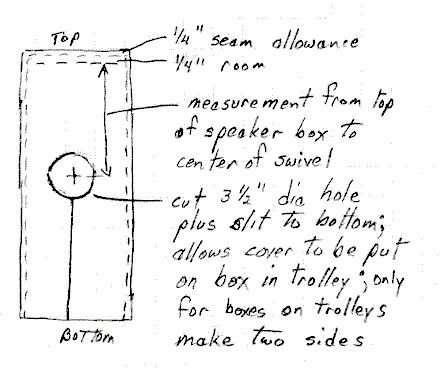 Top
1/4" seam allowance
1/4" room
measurement from top
of speaker box to
center of swivel
cut 3 1/2" dia hole
plus slit to bottom;
allows cover to be put
on box in trolley; only
for boxes on trolleys
make two sides
Bottom